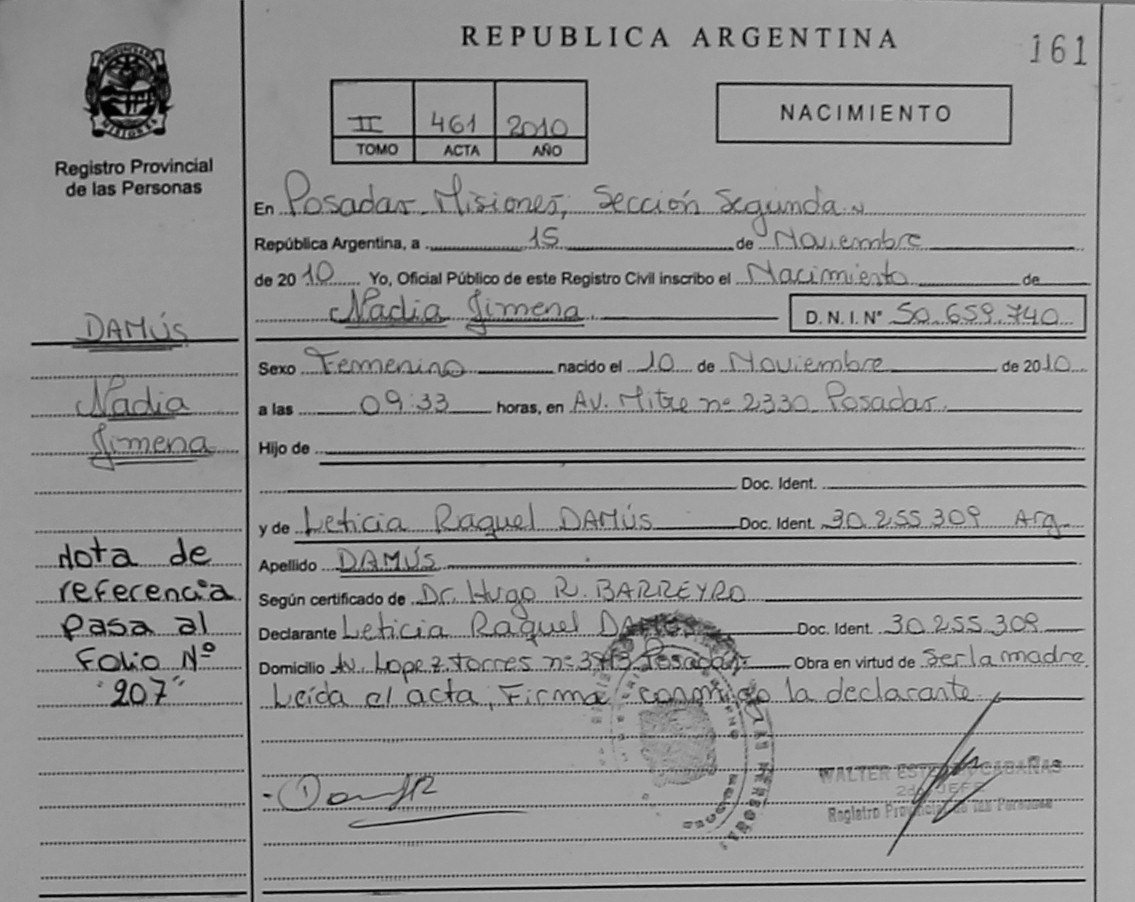 REPUBLICA ARGENTINA
161
PROVINCIA DE MISIONES
Registro Provincial
de las Personas
II 461 2010
TOMO ACTA AÑO
NACIMIENTO
En Posadas, Misiones, Sección Segunda
República Argentina, a 15 de Noviembre
de 2010 Yo, Oficial Público de este Registro Civil inscribo el Nacimiento de
Nadia Jimena D. N. I. N° 50.659.740
DAMÚS
Nadia
Jimena
Sexo Femenino nacido el 10 de Noviembre de 2010
a las 09:33 horas, en Av. Mitre nº 2330 Posadas.
Hijo de
Doc. Ident.
y de Leticia Raquel DAMÚS Doc. Ident. 30.255.309 Arg.
Apellido DAMÚS
Según certificado de Dr. Hugo R. BARREYRO
Declarante Leticia Raquel DAMÚS Doc. Ident. 30.255.309
Domicilio Av. Lopez Torres nº Posadas. Obra en virtud de ser la madre
Leída el acta, Firma conmigo la declarante.
Nota de
referencia
pasa al
Folio Nº
"207"
WALTER CABAÑAS
2do JEFE
Registro Provincial de las Personas